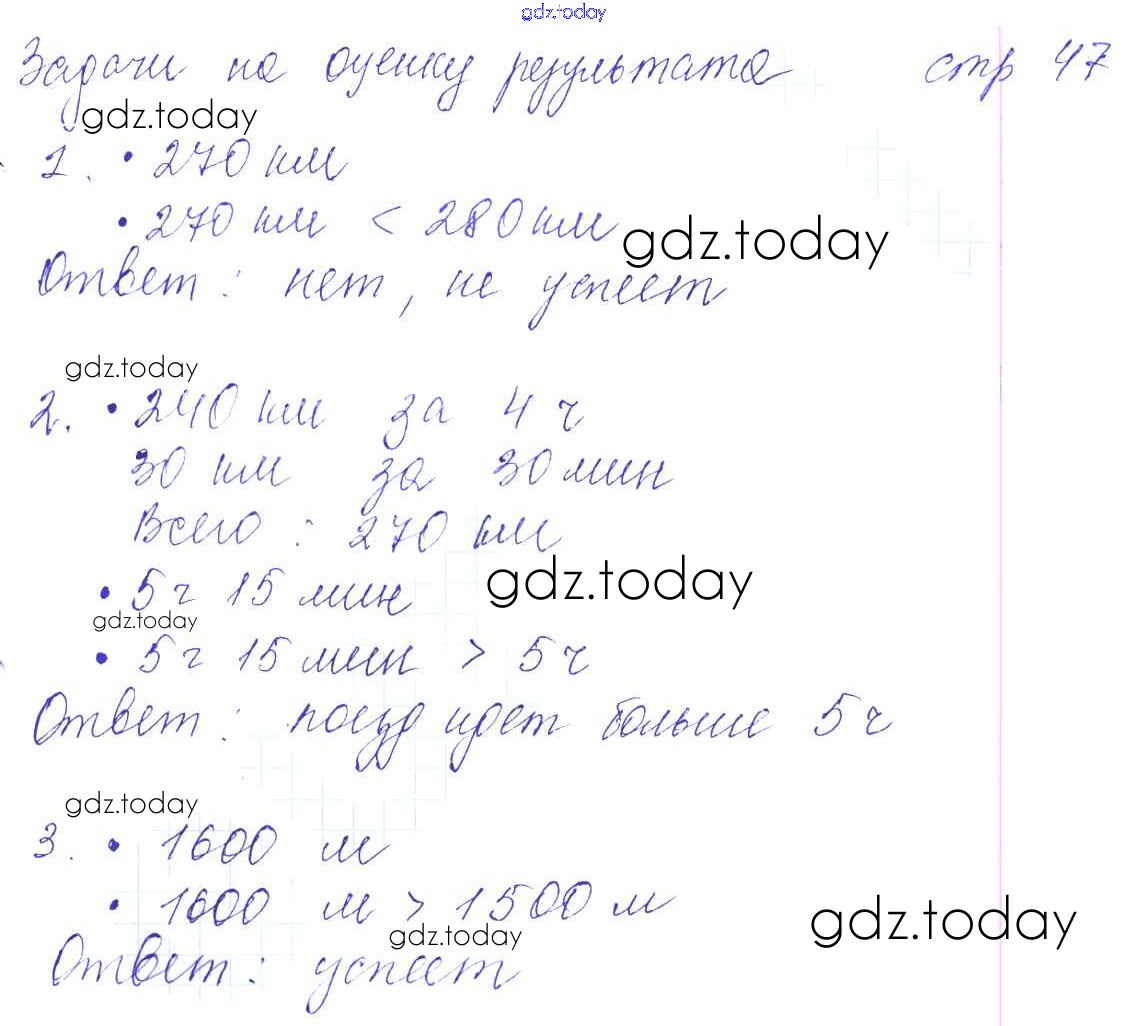 gdz.today
Задачи на оценку результата стр 47
gdz.today
1. • 270 км
• 270 км < 280 км
gdz.today
Ответ: нет, не успеет
gdz.today
2. • 240 км за 4 ч
30 км за 30 мин
Всего: 270 км
gdz.today
• 5 ч 15 мин
gdz.today
• 5 ч 15 мин > 5 ч
Ответ: поезд идет больше 5 ч
gdz.today
3. • 1600 м
• 1600 м > 1500 м
gdz.today
gdz.today
Ответ: успеет